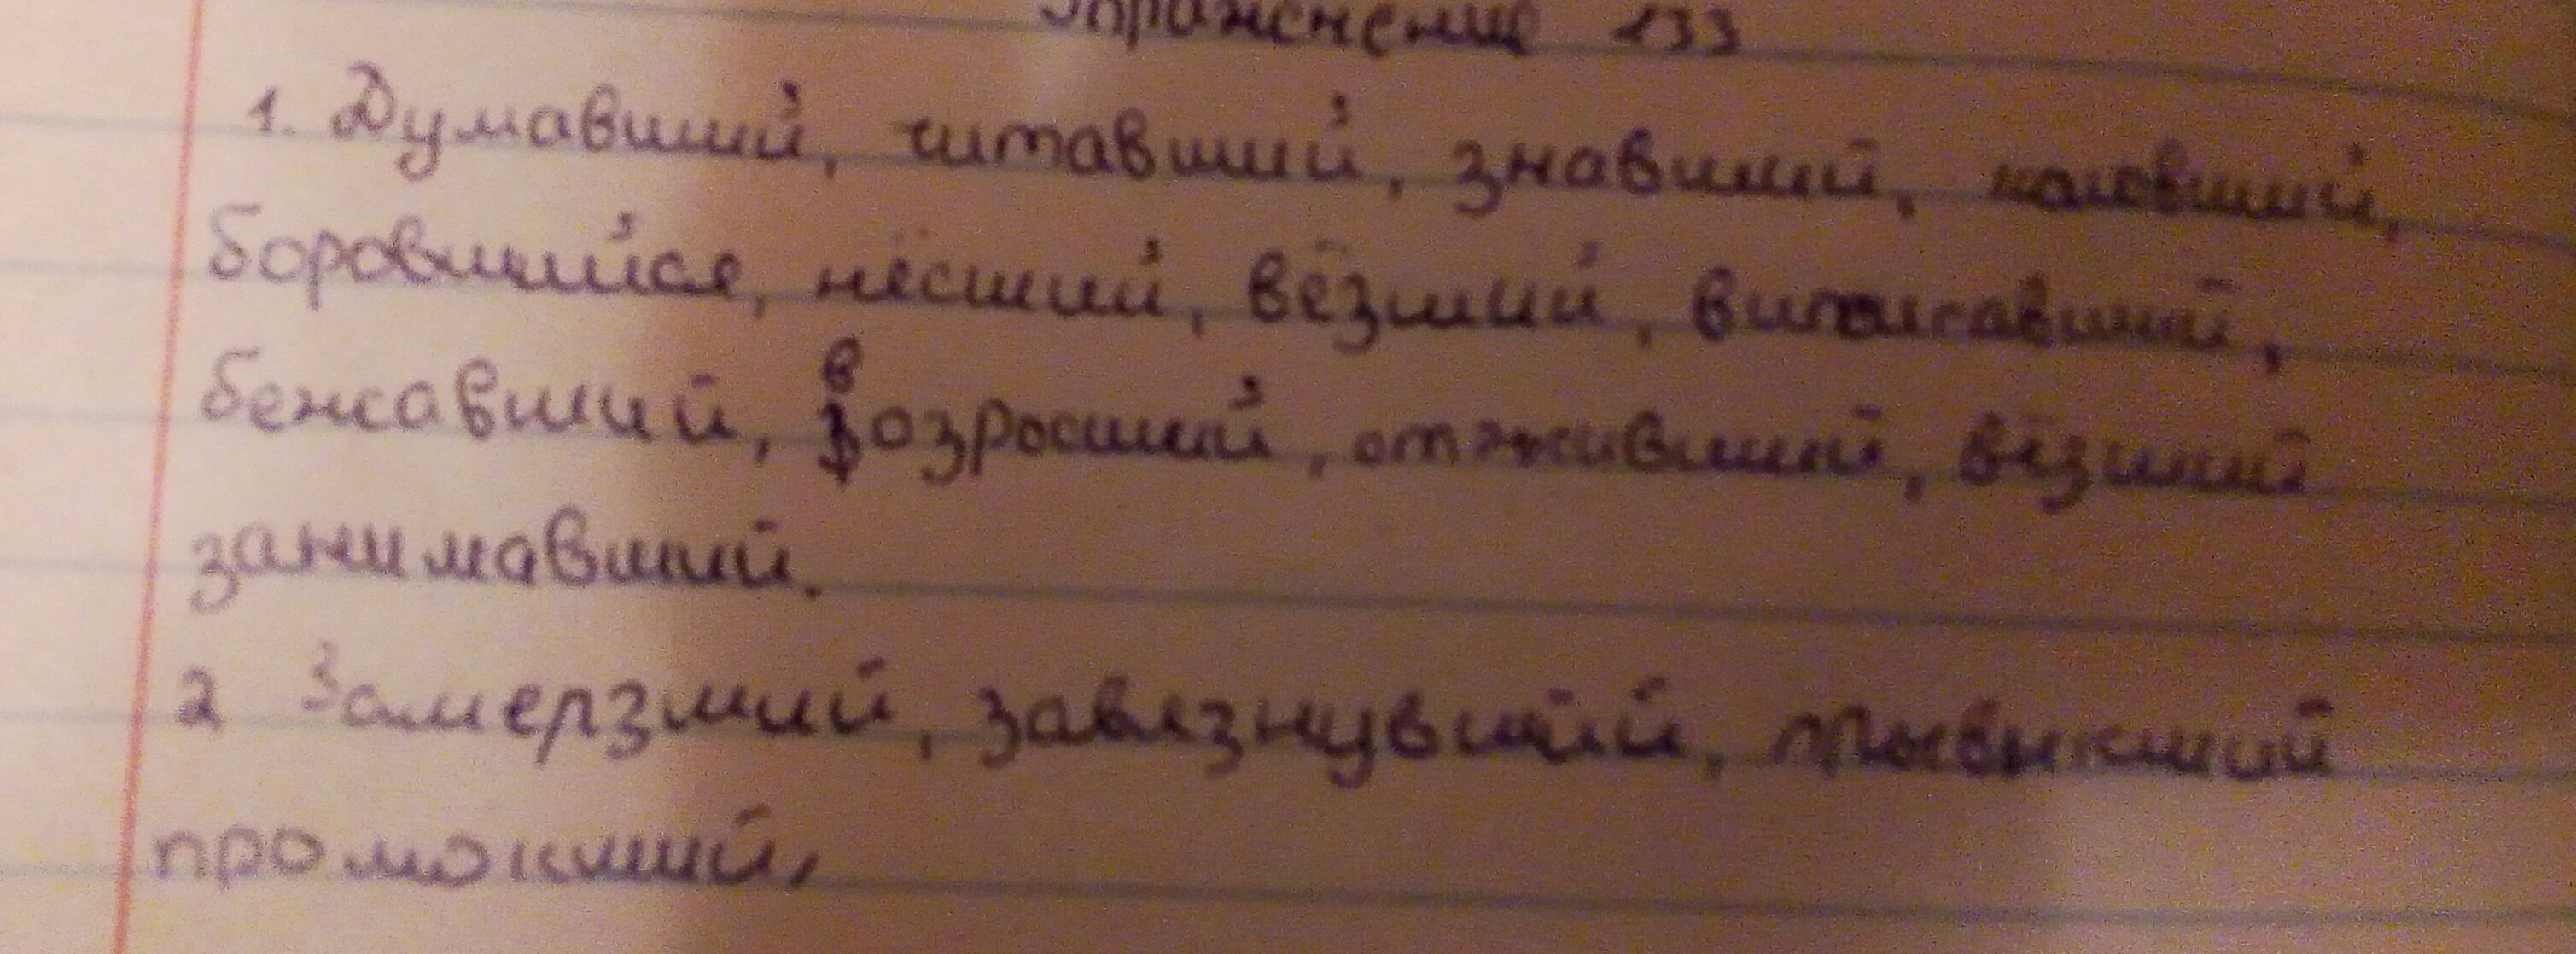 Упражнение 133
1. Думавший, читавший, знавший, коловший,
боровшийся, нёсший, вёзший,
бежавший, возросший, отживший, вёзший
занимавший.
2 Замерзший, завязнувший, прывыкший
промокший,